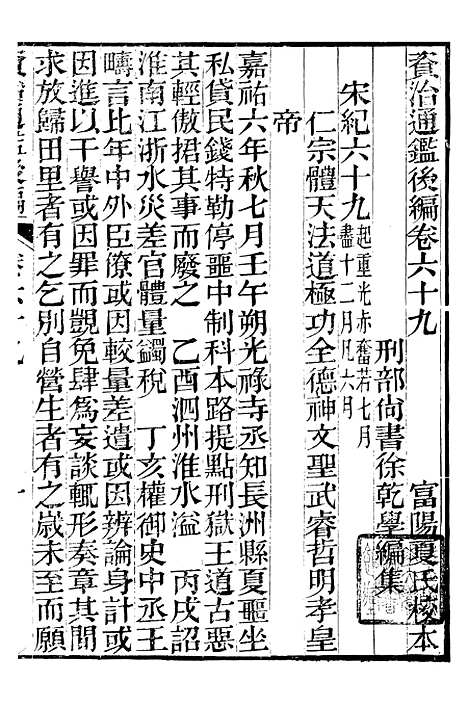 資治通鑑後編卷六十九　富陽夏氏校本
刑部尚書徐乾學編集
宋紀六十九起重光赤奮若七月盡十二月凡六月
仁宗體天法道極功全德神文聖武睿哲明孝皇
帝
嘉祐六年秋七月壬午朔光祿寺丞知長洲縣夏噩坐
私貸民錢特勒停噩中制科本路提點刑獄王道古惡
其輕傲捃其事而廢之　乙酉泗州淮水溢　丙戌詔
淮南江浙水災差官體量蠲稅　丁亥權御史中丞王
疇言比年中外臣僚或因較量差遣或因辨論身計或
因進以干譽或因罪而覬免肆爲妄談輒形奏章其間
求放歸田里者有之乞別自營生者有之歲未至而願
資治通鑑後編　卷六十九　一